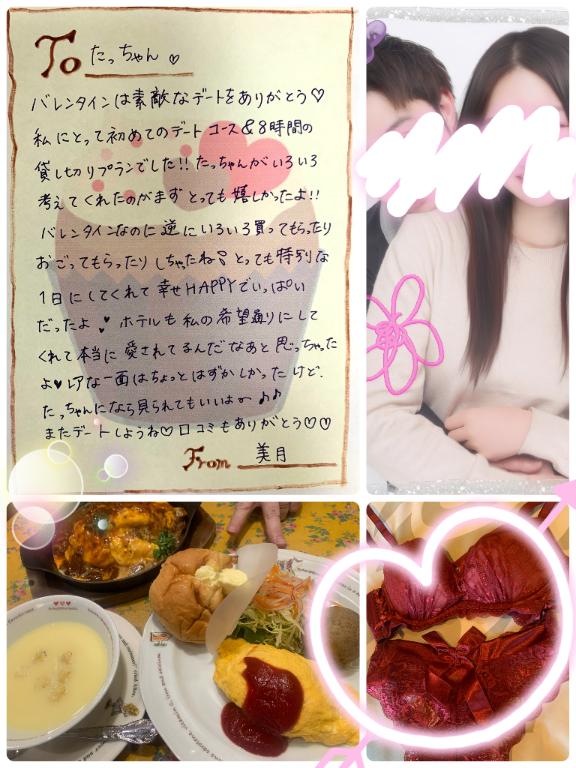 To たっちゃん♡
バレンタインは素敵なデートをありがとう♡
私にとって初めてのデートコース&8時間の
貸し切りプランでした!!たっちゃんがいろいろ
考えてくれたのがまずとっても嬉しかったよ!!
バレンタインなのに逆にいろいろ買ってもらったり
おごってもらったりしちゃたね とっても特別な
1日にしてくれて幸せHAPPYでいっぱい
だったよ ホテルも私の希望通りにして
くれて本当に愛されてるんだなあと思っちゃった
よ♥レアな一面はちょっとはずかしかったけど、
たっちゃんになら見られてもいいよ♪♪
またデートしようね♡口コミもありがとう♡♡
From 美月